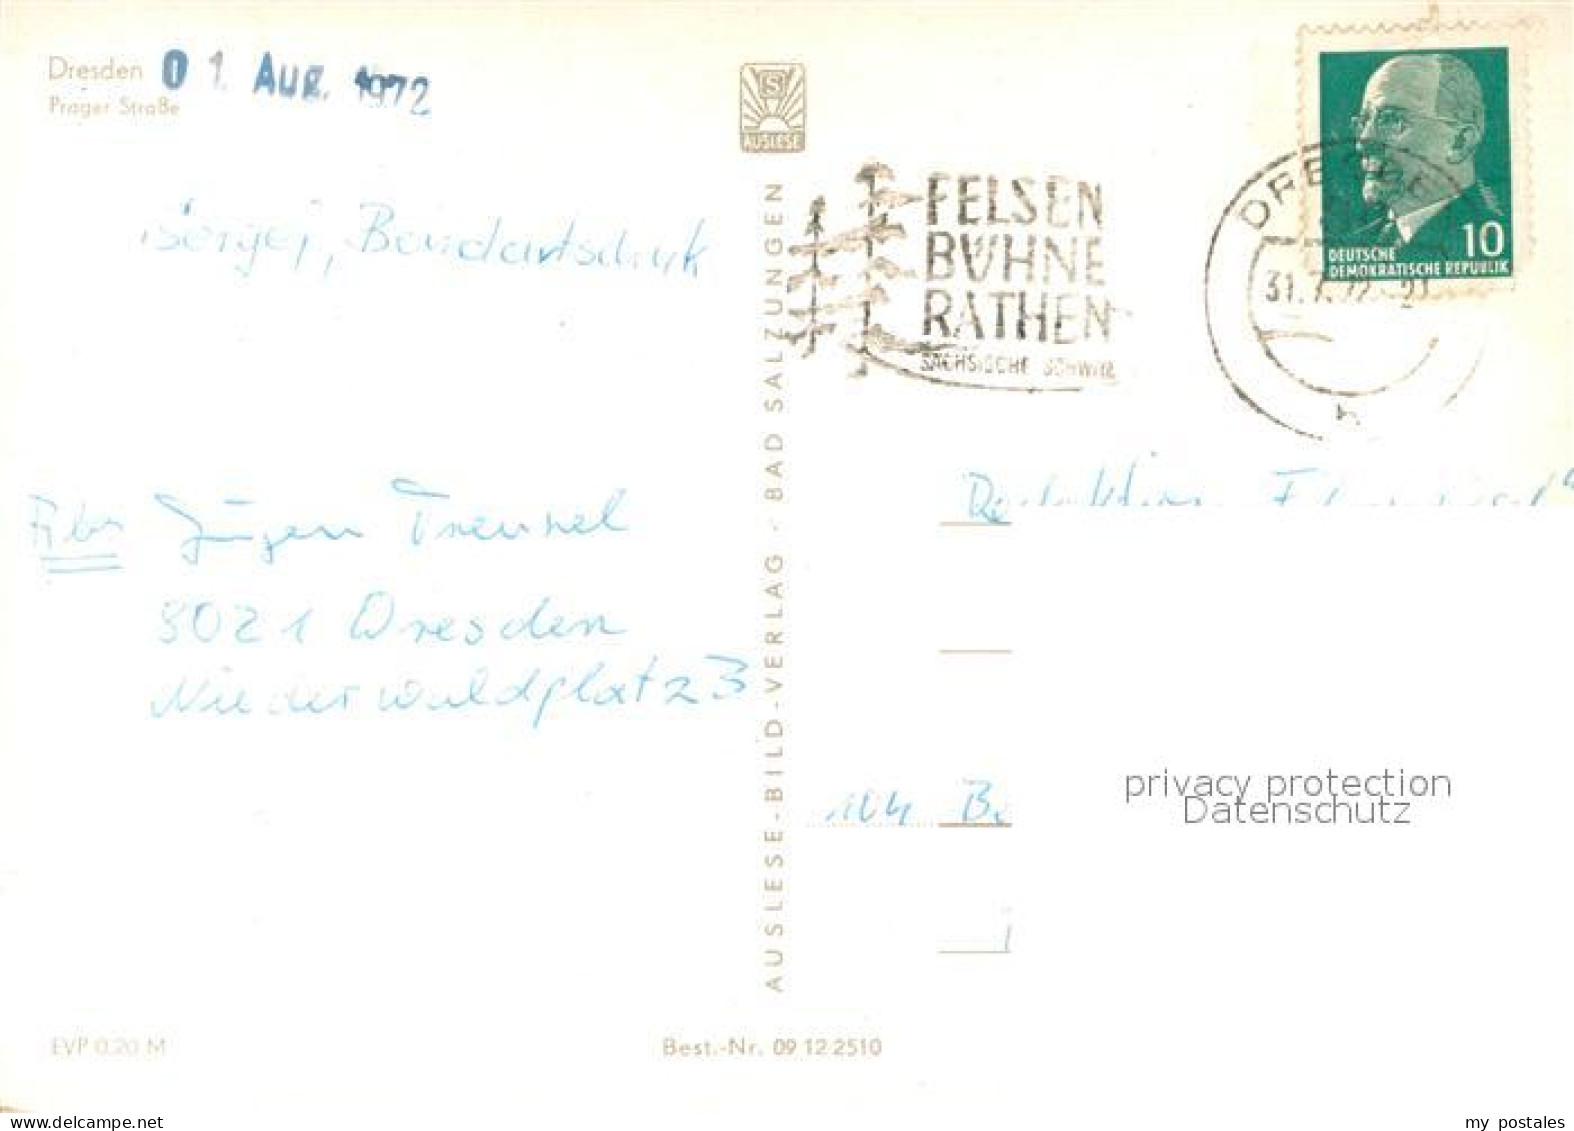 Dresden
Prager Straße
01. AUG. 1972
S
AUSLESE
Sergej, Bondartschuk
FELSEN
BÜHNE
RATHEN
SÄCHSISCHE SCHWEIZ
DRESDEN
31.7.72-21
h
10
DEUTSCHE
DEMOKRATISCHE REPUBLIK
Abs Jürgen Trenkel
8021 Dresden
Niederwaldplatz 3
AUSLESE-BILD-VERLAG · BAD SALZUNGEN
Redaktion
104 Be
privacy protection
Datenschutz
EVP 0,20 M
Best.-Nr. 09 12 2510
https://www.delcampe.net
my postales